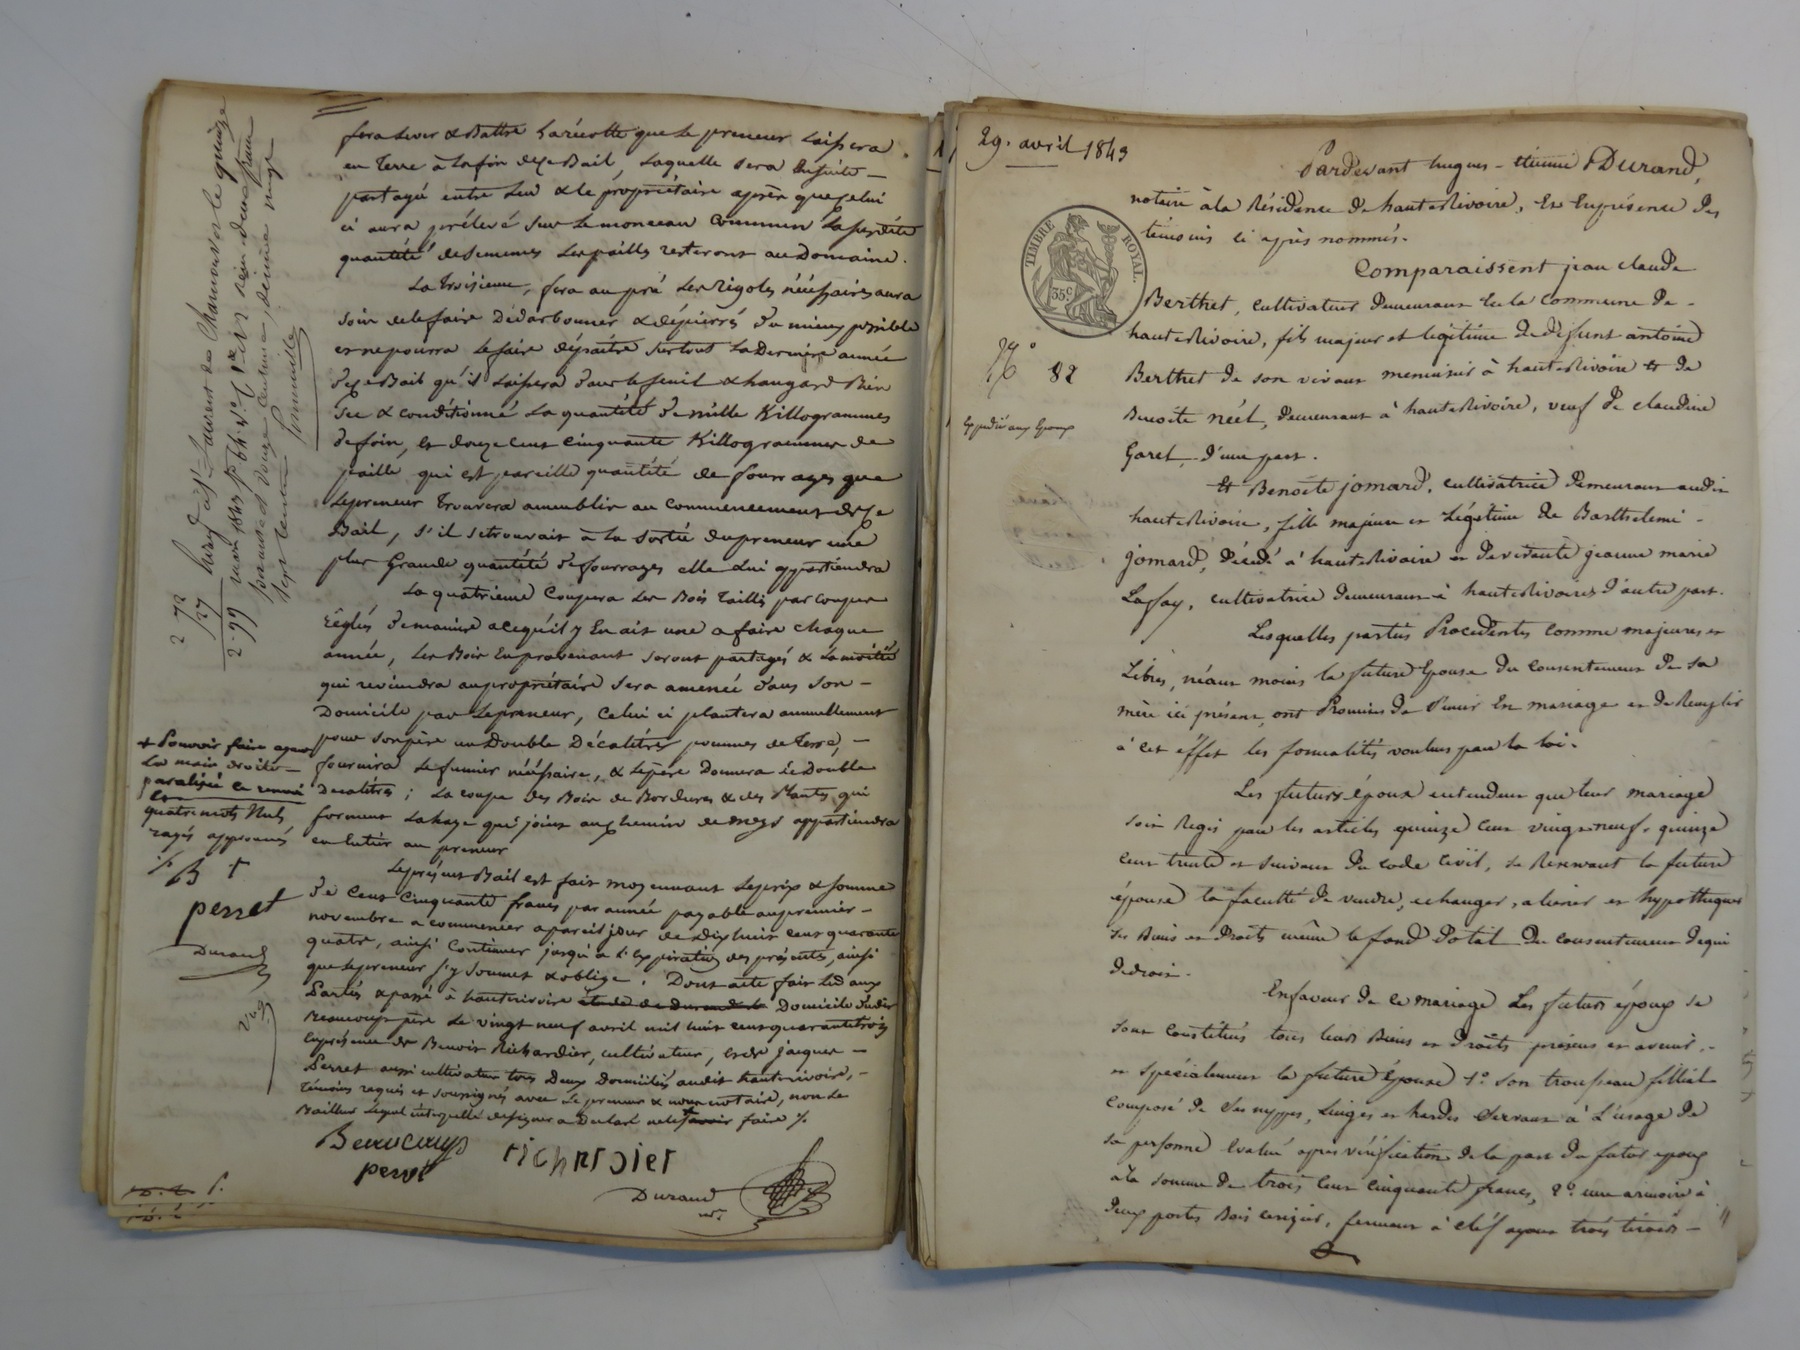 fera lever & Battre la récolte que le preneur laissera
en terre à la fin de ce Bail, laquelle sera Ensuite
partagé entre lui & le propriétaire après que celui
ci aura prélevé sur le monceau commun la susdite
quantité de semences les pailles resteront au Domaine.
La troisieme, fera au pré les rigoles nécessaires aura
soin de le faire Dédarbonner & dépierrés du mieux possible
et ne pourra le faire dépaitre surtout la dernière année
de ce Bail qu'il laissera dans le fenil & hangard Bien
sec & conditionné la quantité de mille Killogrammes
de foin, et douze cent cinquante Killogrammes de
paille qui est pareille quantité de fourrages que
le preneur trouvera ameublir au commencement de ce
Bail, s'il se trouvait à la sortie du preneur une
plus Grande quantité de fourrages elle lui appartiendra
La quatrieme Coupera les Bois taillis par coupes
Règlés de manière a ce qu'il y En ait une a faire chaque
année, les Bois En provenant seront partagés & la moitié
qui reviendra au propriétaire sera amenée dans son
Domicile par le preneur, celui ci plantera annuellement
pour son père un Double Décalitre pommes de terre,
fournira le fumier nécessaire, & le père Donnera le Double
Decalitre ; La coupe des Bois de Bordures & des Plants qui
forment la haye qui joint au chemin de meys appartiendra
en Entier au preneur
Le présent Bail est fait moyennant le prix & somme
de Cent Cinquante francs par année payable au premier
novembre a commencer a pareil jour de dix huit cent quarante
quatre, ainsi Continuer jusqu'à l'Expiration des présentes, ainsi
que le preneur s'y soumet & oblige. Dont acte fait Lu aux
Parties & passé à hauterivoire étude de Durand Domicile dudit
Beaucoup père le vingt neuf avril mil huit cent quarante trois
En présence de Benoit Richardier, cultivateur, et de jacques
Perret aussi cultivateur tous Deux Domiciliés audit hauterivoire,
témoins requis et soussignés avec le preneur & nous notaire, non le
Bailleur lequel interpellé de signer a Déclaré ne le savoir faire
Beaucoup
richardier
perret
Durand
nre
+ Pouvoir faire ayant
La main droite
paralisée le renvoi
Et
quatre mots Nuls
rayés approuvés
B
perret
Durand
29. avril 1843
Pardevant hugues-étienne Durand,
notaire à la Résidence de hauterivoire, En En présence des
témoins ci après nommés.
TIMBRE ROYAL.
35 c
Comparaissent jean claude
Berthet, cultivateur Demeurant En la commune de
hauterivoire, fils majeur et legitime de défunt antoine
N° 82
Berthet de son vivant menuisier à hauterivoire et de
Benoite néel, Demeurant à hauterivoire, veuf de claudine
Expedié aux Epoux
Garel, d'une part.
Et Benoite jomard, cultivatrice Demeurant audit
hauterivoire, fille majeure et Légitime de Barthelemi
jomard, Décédé à hauterivoire et de vivante jeanne marie
Lafay, cultivatrice Demeurant à hauterivoire, d'autre part.
Lesquelles parties Procédentes comme majeures et
Libres, néant moins la future Epouse du consentement de sa
mère ici présent, ont Promis de s'unir En mariage et de Remplir
à cet effet les formalités voulues par la loi.
Les futurs époux entendent que leur mariage
soit Régis par les articles quinze cent vingt-neuf, quinze
cent trente et suivant du code civil, se Réservant la future
épouse la faculté de vendre, echanger, aliener et hypothequer
ses Biens et Droits même le fond Dotal Du consentement de qui
de droit.
En faveur de ce mariage Les futurs époux se
sont constitués tous leurs Biens et Droits présens et avenir,
et spécialement la future épouse 1° son trousseau filliat
composé de ses nippes, Linges et hardes servant à l'usage de
sa personne Evalué apres vérification de la part du futur epoux
à la somme de trois cent cinquante francs, 2° une armoire à
deux portes Bois cerisier, fermant à cléf ayant trois tiroirs